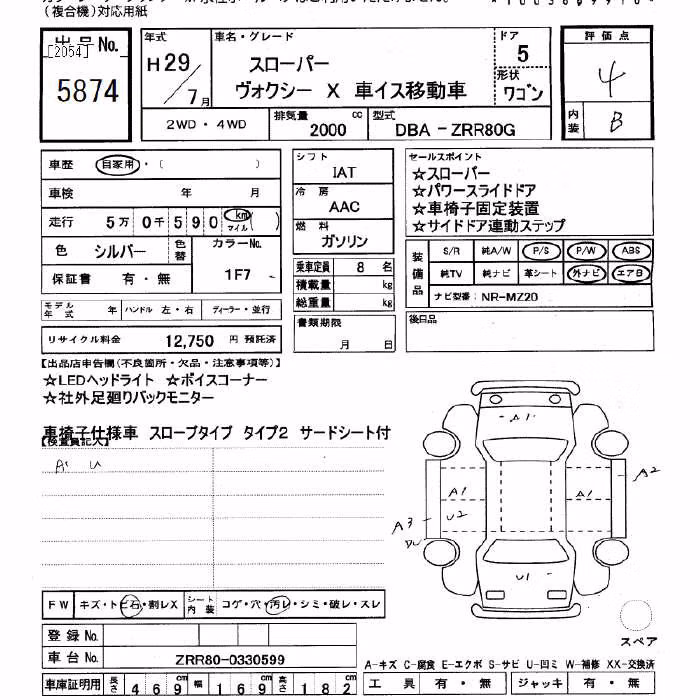 (複合機)対応用紙
出品No. [2054] 5874
年式 H29/7月
車名・グレード スローパー
ヴォクシー X 車イス移動車
ドア 5
形状 ワゴン
評価点 4
内装 B
2WD・4WD 排気量 2000 cc 型式 DBA-ZRR80G
車歴 自家用・( )
車検 年 月
走行 5万0千590 km マイル ( )
色 シルバー 色替 カラーNo. 1F7
保証書 有・無
モデル年式 年 ハンドル 左・右 ディーラー・並行
リサイクル料金 12,750 円 預託済
シフト IAT
冷房 AAC
燃料 ガソリン
乗車定員 8 名
積載量 kg
総重量 kg
書類期限 月 日
セールスポイント
☆スローパー
☆パワースライドドア
☆車椅子固定装置
☆サイドドア連動ステップ
装備品 S/R 純A/W P/S P/W ABS
純TV 純ナビ 革シート 外ナビ エアB
ナビ型番: NR-MZ20
後日品
【出品店申告欄(不良箇所・欠品・注意事項等)】
☆LEDヘッドライト ☆ボイスコーナー
☆社外足廻りバックモニター
車椅子仕様車 スロープタイプ タイプ2 サードシート付
【検査員記入】
A' U
A1
A2
A1 A1
U2
A3
U1
FW キズ・トビ石・割レX シート内装 コゲ・穴・汚レ・シミ・破レ・スレ
登録No.
車台No. ZRR80-0330599
スペア
A-キズ C-腐食 E-エクボ S-サビ U-凹ミ W-補修 XX-交換済
車庫証明用 長さ 469cm 幅 169cm 高さ 182cm
工具 有・無 ジャッキ 有・無